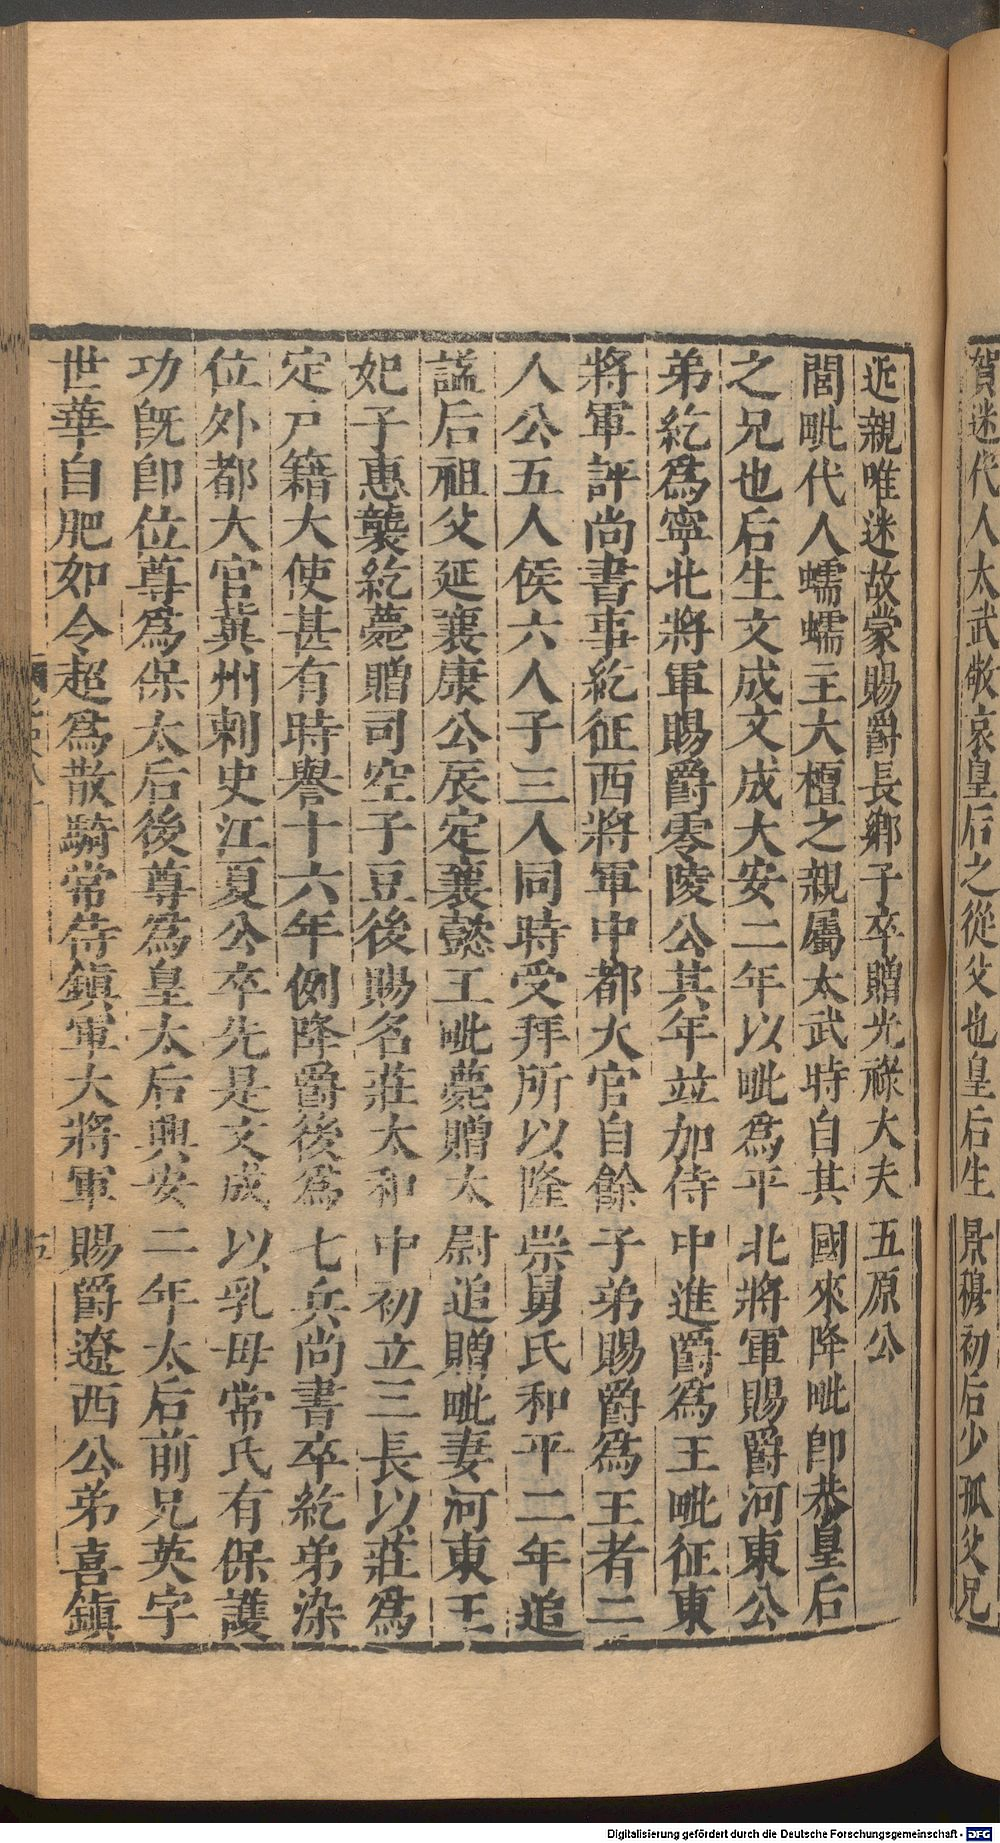 賀迷代人太武敬哀皇后之從父也皇后生景穆初后少孤父兄
近親唯迷故蒙賜爵長鄉子卒贈光祿大夫五原公
閭毗代人蠕蠕主大檀之親屬太武時自其國來降毗卽恭皇后
之兄也后生文成文成大安二年以毗爲平北將軍賜爵河東公
弟紇爲寧北將軍賜爵零陵公其年竝加侍中進爵爲王毗征東
將軍評尚書事紇征西將軍中都大官自餘子弟賜爵爲王者二
人公五人侯六人子三人同時受拜所以隆崇舅氏和平二年追
謚后祖父延襄康公辰定襄懿王毗薨贈太尉追贈毗妻河東王
妃子惠襲紇薨贈司空子豆後賜名莊太和中初立三長以莊爲
定戸籍大使甚有時譽十六年例降爵後爲七兵尚書卒紇弟染
位外都大官冀州刺史江夏公卒先是文成以乳母常氏有保護
功旣卽位尊爲保太后後尊爲皇太后興安二年太后前兄英字
世華自肥如令超爲散騎常侍鎭軍大將軍賜爵遼西公弟喜鎭
五
Digitalisierung gefördert durch die Deutsche Forschungsgemeinschaft - DFG